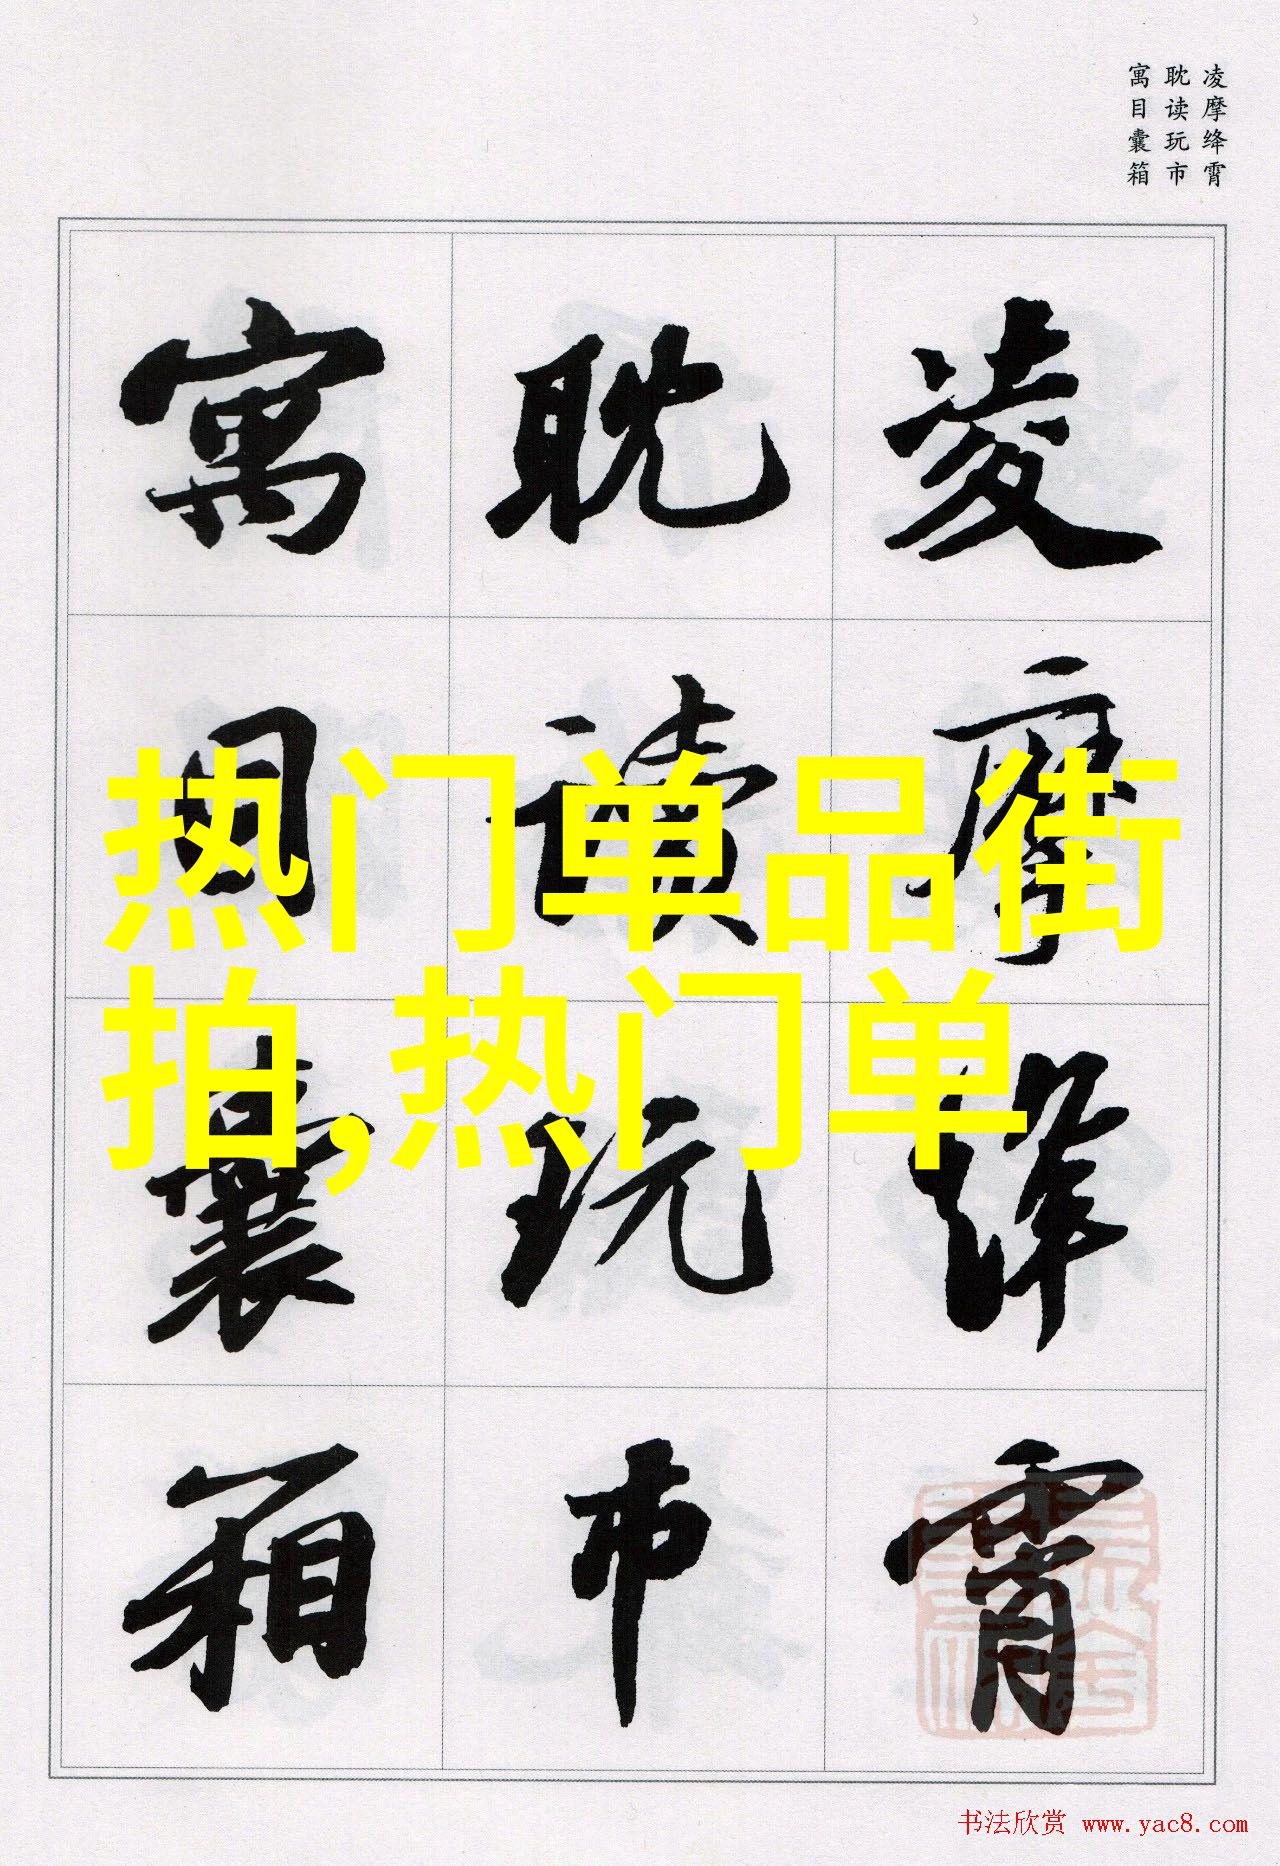 凌摩绛霄
耽读玩市
寓目囊箱
凌摩绛霄
耽读玩市
寓目囊箱
热门单品街
拍,热门单
书法欣赏 www.yac8.com